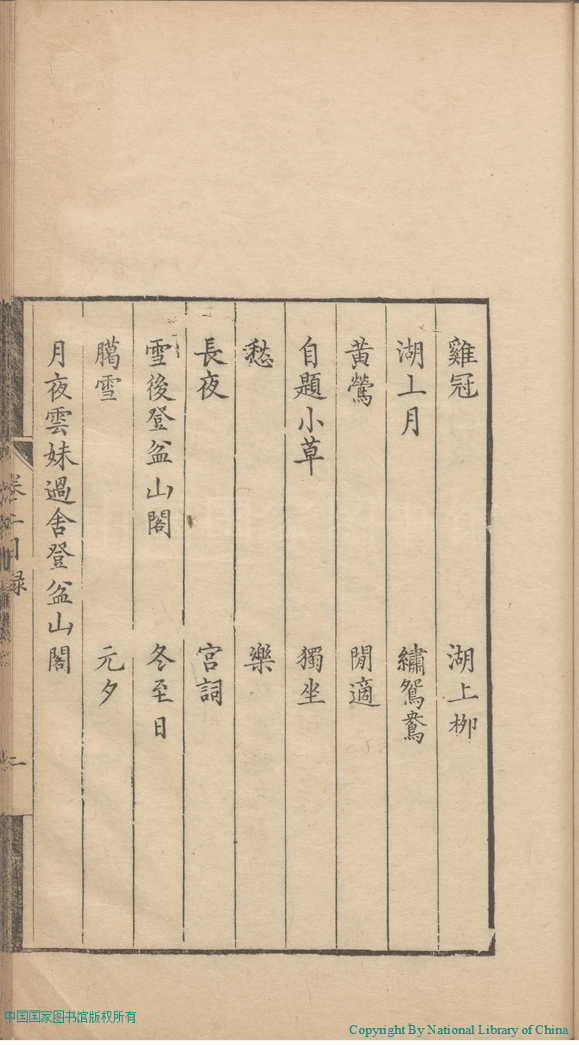 雞冠　湖上柳
湖上月　繡鴛鴦
黄鶯　閒適
自題小草　獨坐
愁　樂
長夜　宮詞
雪後登盆山閣　冬至日
臈雪　元夕
月夜雲妹過舍登盆山閣
卷二目録
二
中国国家图书馆版权所有
Copyright By National Library of China